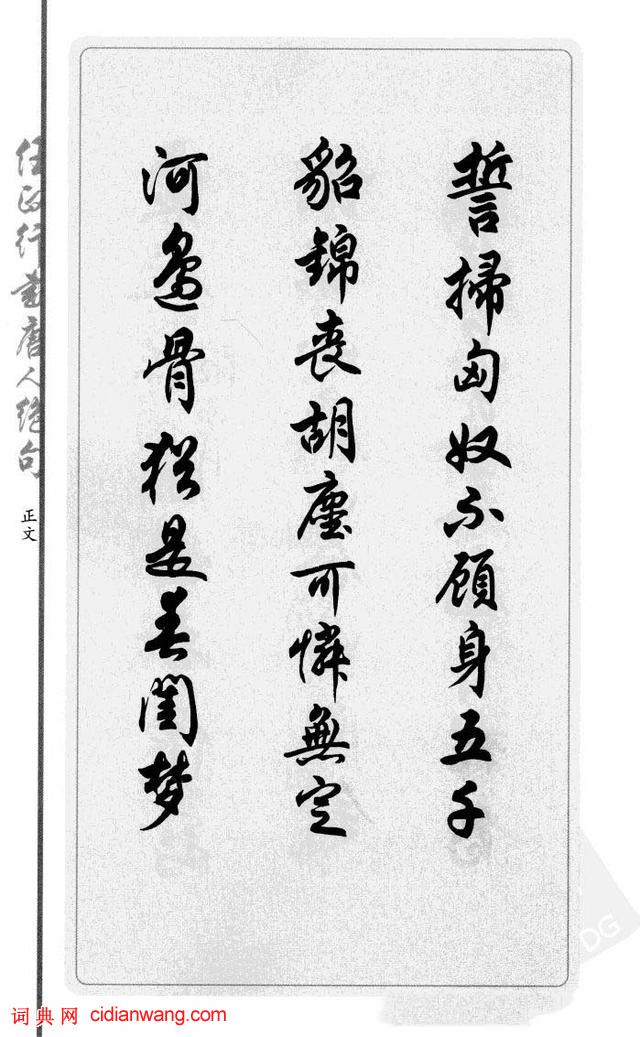 誓掃匈奴不顧身五千
貂錦喪胡塵可憐無定
河邊骨猶是春閨梦
任政行書唐人絕句
正文
词典网 cidianwang.com
DG